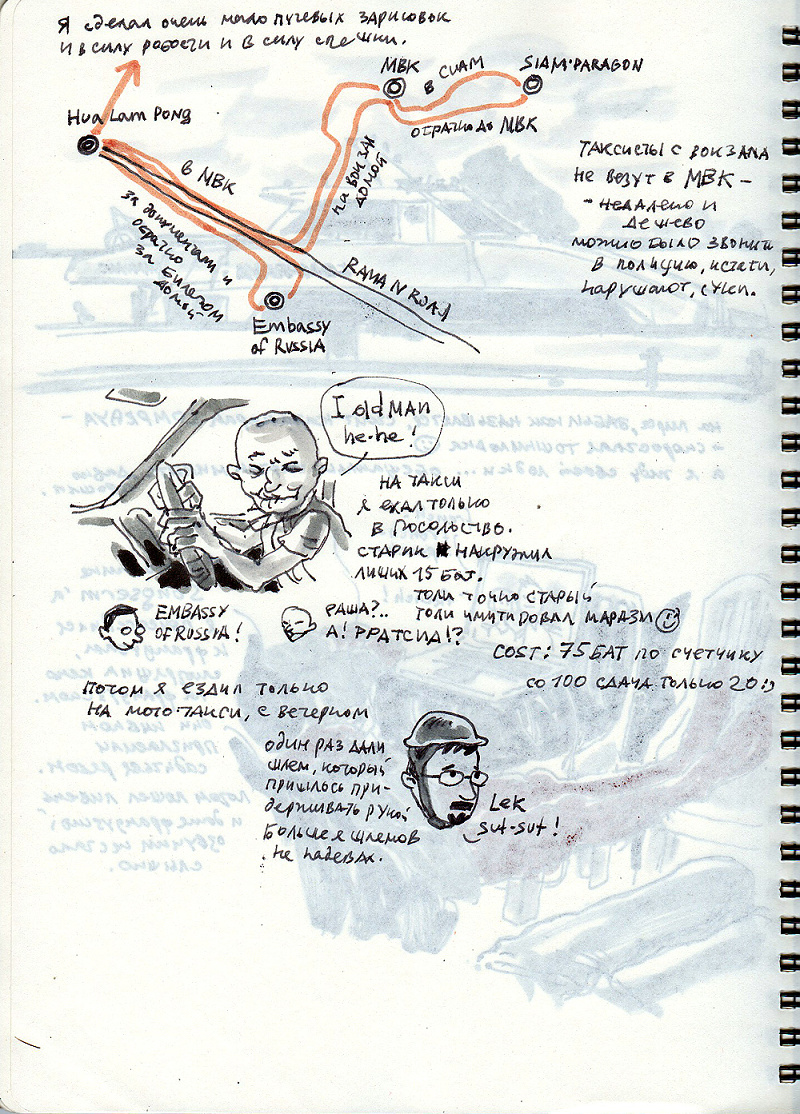 Я сделал очень мало путевых зарисовок
и в силу робости и в силу спешки.
Hua Lam Pong
MBK
в СИАМ
SIAM·PARAGON
обратно до МВК
в МВК
на вокзал
домой
за документами и
обратно
за билетом
домой
RAMA IV ROAD
Embassy
of RUSSIA
Таксисты с вокзала
не везут в МВК –
недалеко и
дешево
можно было звонить
в полицию, кстати,
нарушают, суки.
I old MAN
he-he!
На такси
я ехал только
в посольство.
Старик накружил
лишних 15 бат.
Толи точно старый
толи имитировал маразм
EMBASSY
OF RUSSIA!
Раша?..
А! Рратсиа!?
COST: 75 БАТ по счетчику
со 100 сдача только 20 :)
Потом я ездил только
на мото-такси, с ветерком
один раз дали
шлем, который
пришлось при-
держивать рукой
Больше я шлемов
не надевал.
Lek
sut-sut!